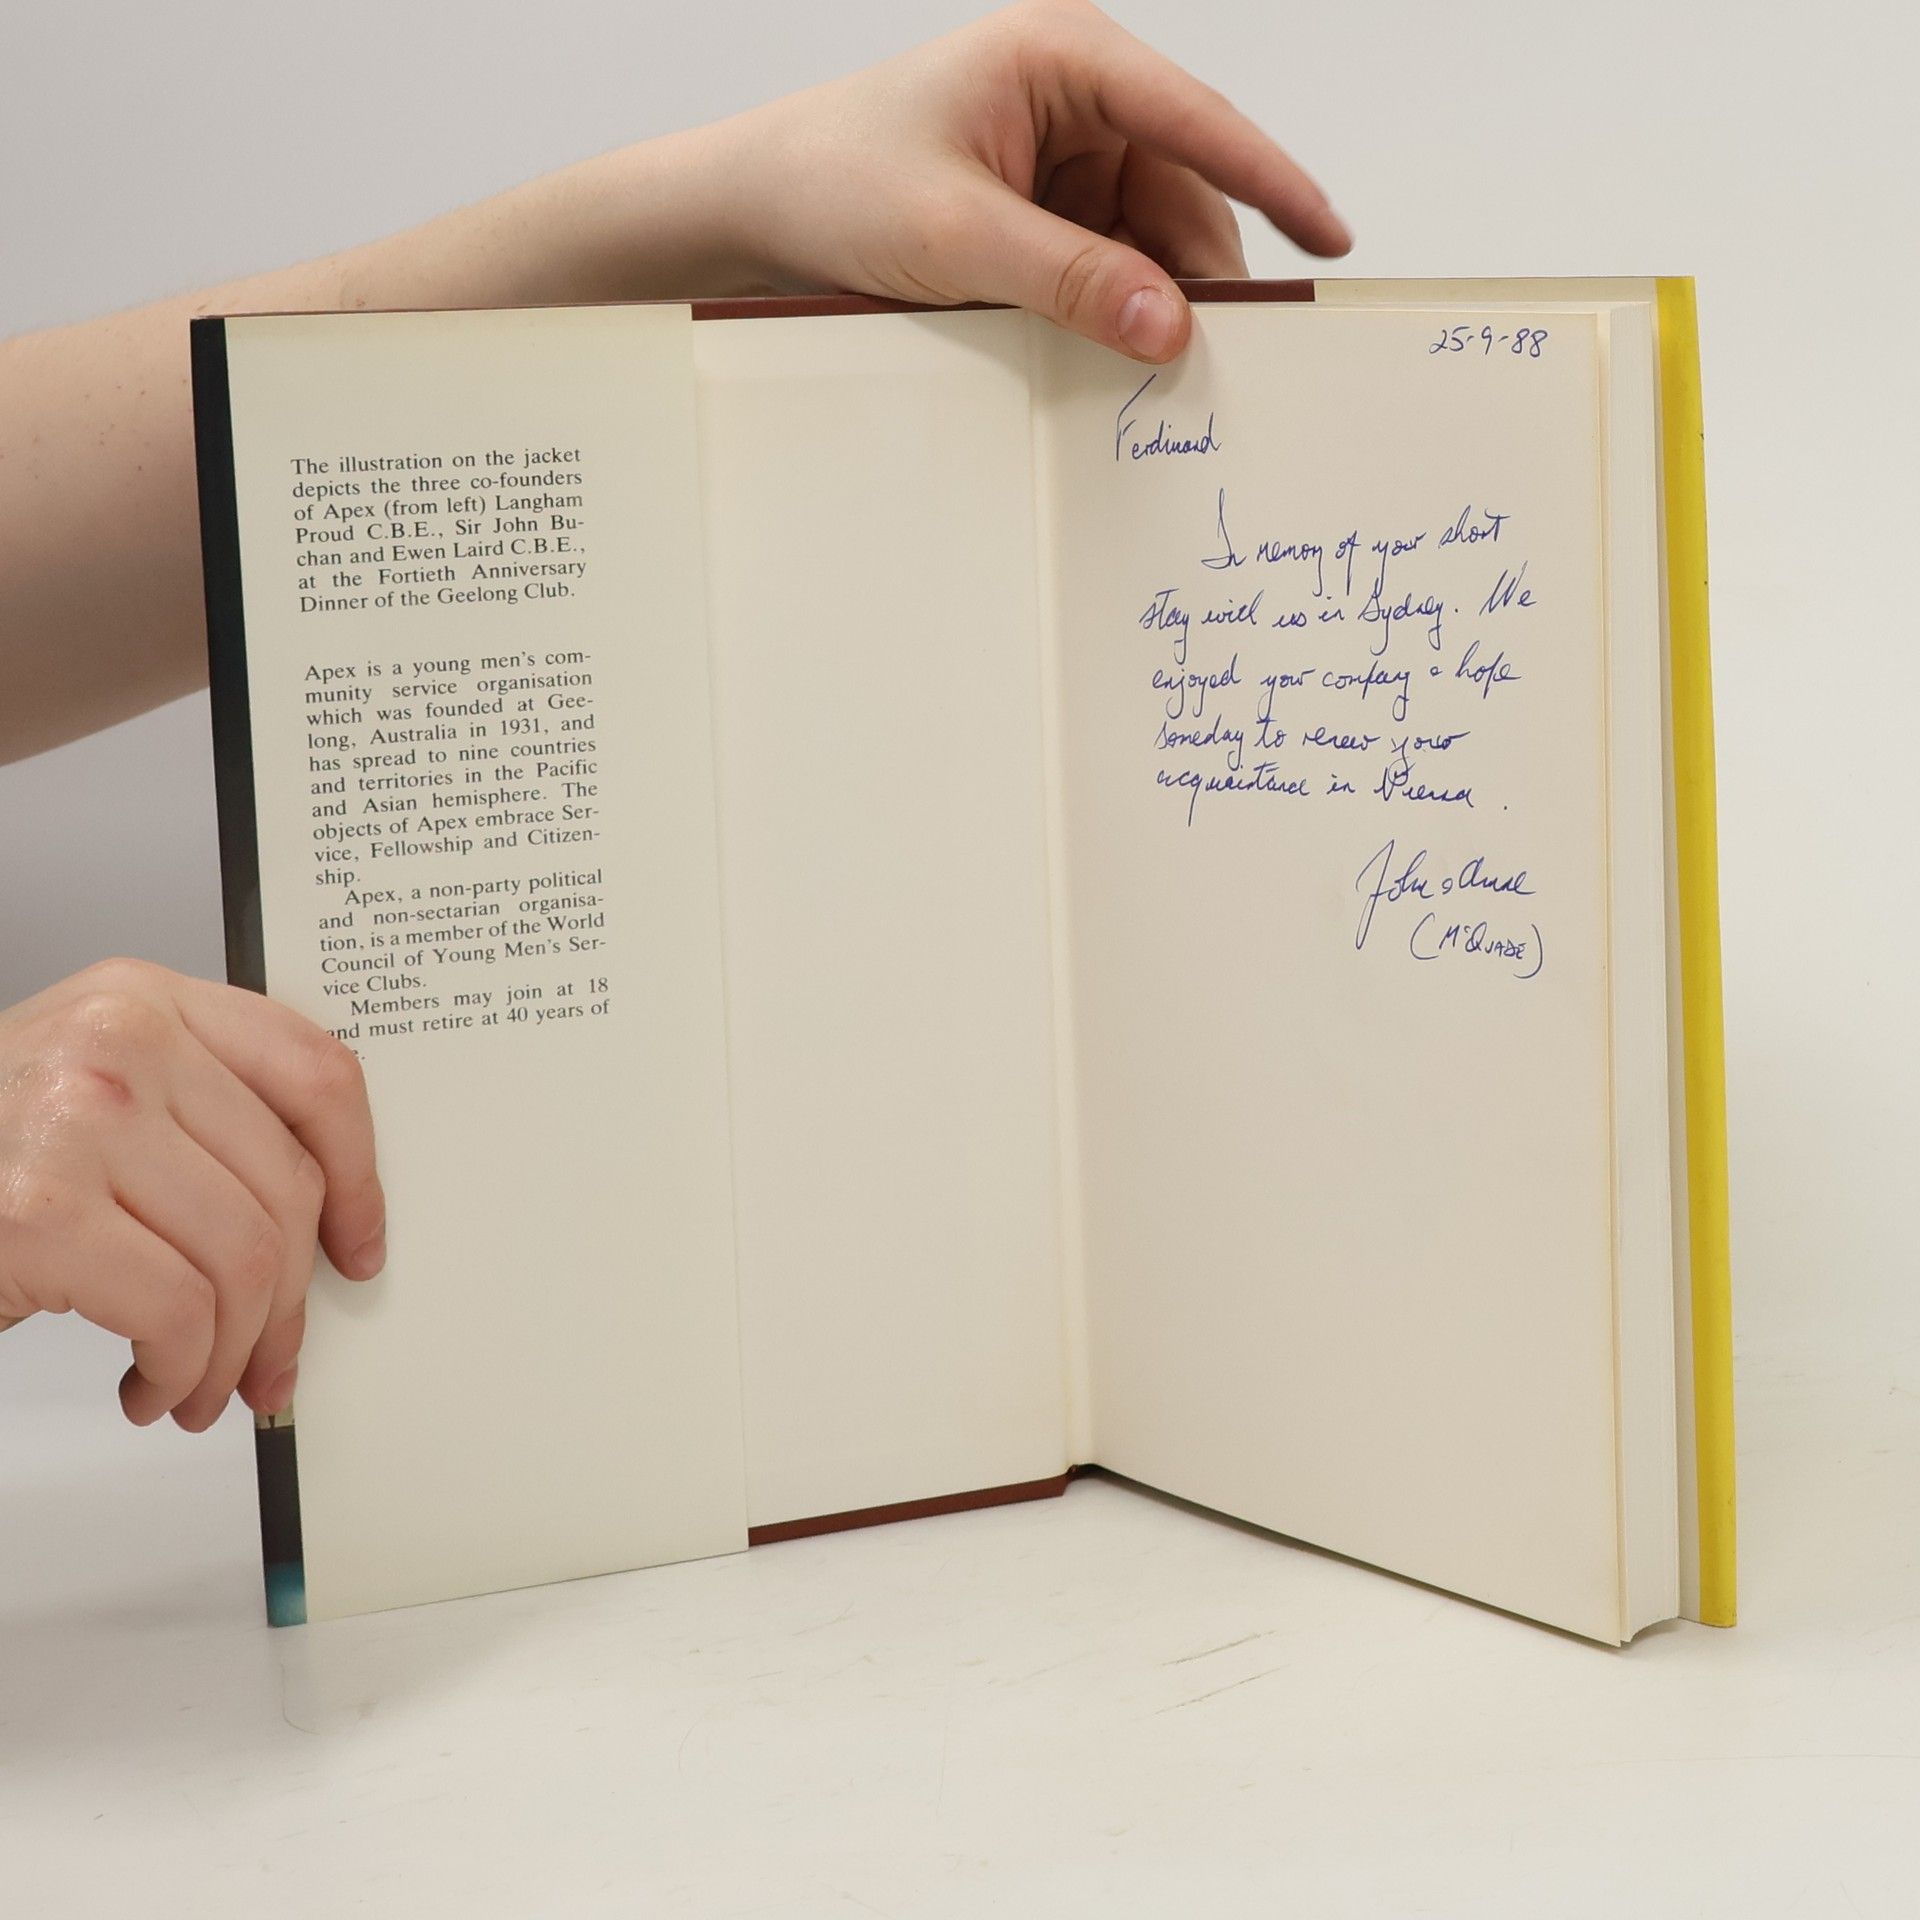 The illustration on the jacket
depicts the three co-founders
of Apex (from left) Langham
Proud C.B.E., Sir John Bu-
chan and Ewen Laird C.B.E.,
at the Fortieth Anniversary
Dinner of the Geelong Club.
Apex is a young men's com-
munity service organisation
which was founded at Gee-
long, Australia in 1931, and
has spread to nine countries
and territories in the Pacific
and Asian hemisphere. The
objects of Apex embrace Ser-
vice, Fellowship and Citizen-
ship.
Apex, a non-party political
and non-sectarian organisa-
tion, is a member of the World
Council of Young Men's Ser-
vice Clubs.
Members may join at 18
and must retire at 40 years of
25-9-88
Ferdinand
In memory of your short
stay with us in Sydney. We
enjoyed your company & hope
someday to renew your
acquaintance in Vienna.
John & Anne
(McQUADE)